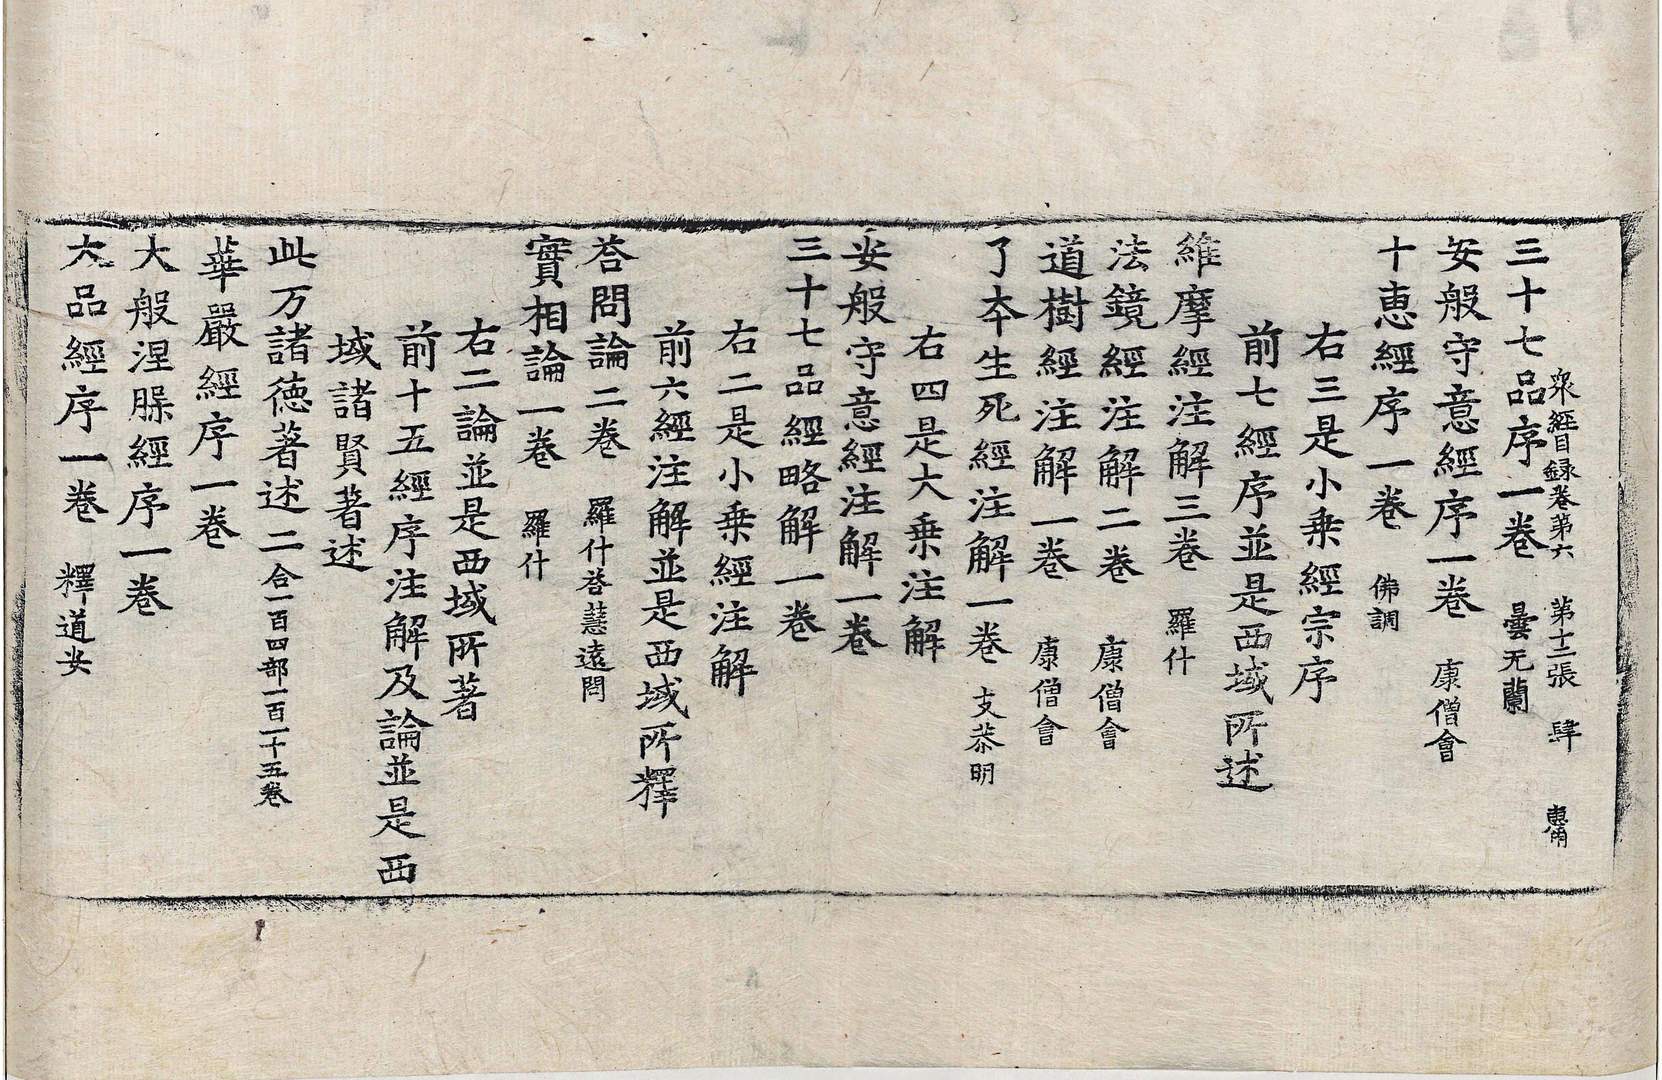 衆經目録卷第六 第十二張 肆
三十七品序一卷 曇无蘭
安般守意經序一卷 康僧會
十恵經序一卷 佛調
右三是小乗經宗序
前七經序並是西域所述
維摩經注解三卷 羅什
法鏡經注解二卷 康僧會
道樹經注解一卷 康僧會
了夲生死經注解一卷 支恭明
右四是大乗注解
安般守意經注解一卷
三十七品經略解一卷
右二是小乗經注解
前六經注解並是西域所釋
荅問論二卷 羅什荅慧遠問
實相論一卷 羅什
右二論並是西域所著
前十五經序注解及論並是西
域諸賢著述
此方諸徳著述二合一百四部一百一十五卷
華嚴經序一卷
大般涅槃經序一卷
大品經序一卷 釋道安